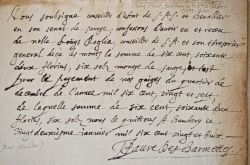 Nous soubsigné conseiller d'estat de S.A.S. et senateur
en son senat de savoye, confessons l'avoir eu et receu
de noble Louis conseiller de S.A. et son tresorier
general deça les monts la somme de six cent soixante
deux florins, six sols, monoye de savoye, et c'est
pour le payement de nos gaiges du quartier de
decembre de l'annee mil six cent vingt et sept
de laquelle somme de six cent soixante deux
florins six sols nous le quittons A Chambery ce
vingt deuxiesme janvier mil six cent vingt huict
Faure Des Charmettes